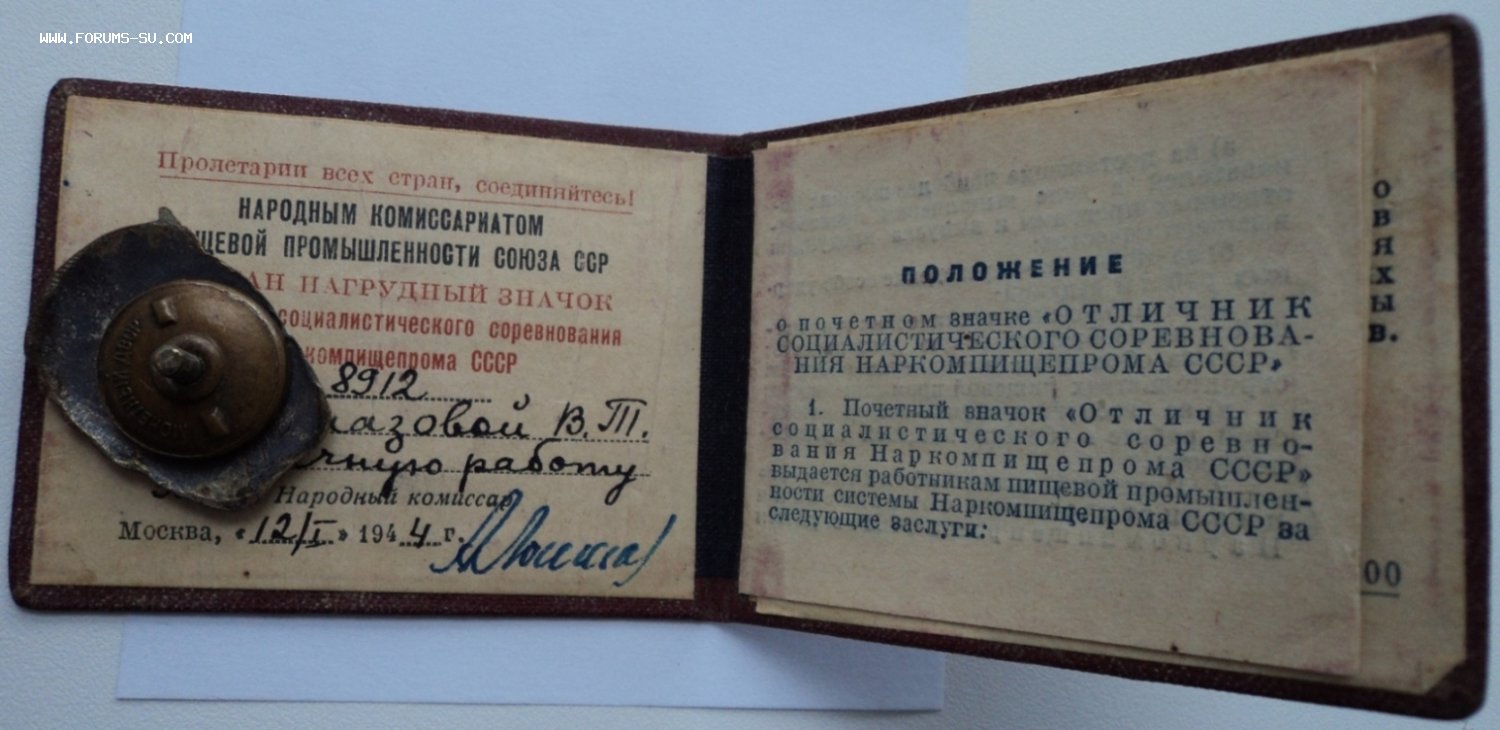 WWW.FORUMS-SU.COM
Пролетарии всех стран, соединяйтесь!
НАРОДНЫМ КОМИССАРИАТОМ
ЩЕВОЙ ПРОМЫШЛЕННОСТИ СОЮЗА ССР
АН НАГРУДНЫЙ ЗНАЧОК
социалистического соревнования
компищепрома СССР
8912
азовой В.Т.
чную работу
Народный комиссар
Москва, «12/I» 1944 г.
МОНЕТНЫЙ ДВОР
ПОЛОЖЕНИЕ
о почетном значке «ОТЛИЧНИК
СОЦИАЛИСТИЧЕСКОГО СОРЕВНОВА-
НИЯ НАРКОМПИЩЕПРОМА СССР»
1. Почетный значок «Отличник
социалистического соревно-
вания Наркомпищепрома СССР»
выдается работникам пищевой промышлен-
ности системы Наркомпищепрома СССР за
следующие заслуги:
о
в
я
х
ы
в.
00